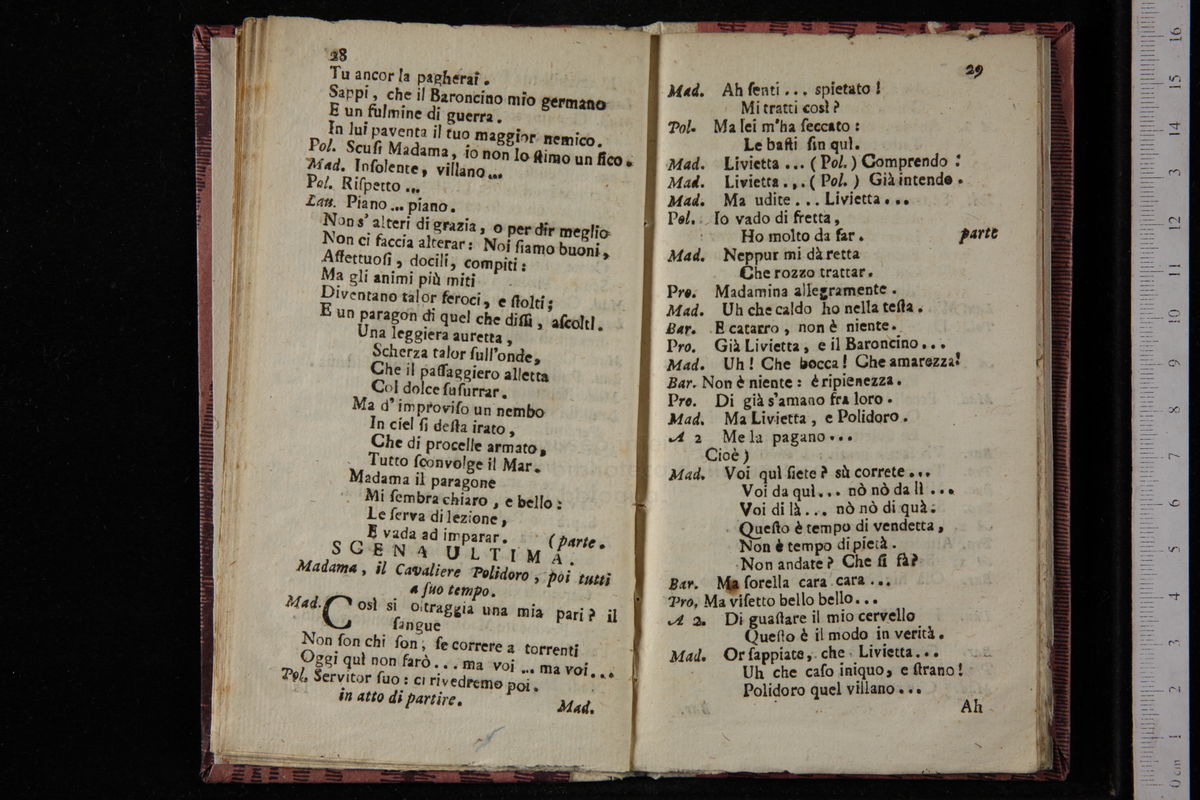 28
Tu ancor la pagherai.
Sappi, che il Baroncino mio germano
E un fulmine di guerra.
In lui paventa il tuo maggior nemico.
Pol. Scuſi Madama, io non lo ſtimo un fico.
Mad. Inſolente, villano...
Pol. Riſpetto...
Lau. Piano... piano.
Non s'alteri di grazia, o per dir meglio
Non ci faccia alterar: Noi ſiamo buoni,
Affettuoſi, docili, compiti:
Ma gli animi più miti
Diventano talor feroci, e ſtolti;
E un paragon di quel che diſſi, aſcolti.
Una leggiera auretta,
Scherza talor ſull'onde,
Che il paſſaggiero alletta
Col dolce ſuſurrar.
Ma d'improviſo un nembo
In ciel ſi deſta irato,
Che di procelle armato,
Tutto ſconvolge il Mar.
Madama il paragone
Mi ſembra chiaro, e bello:
Le ſerva di lezione,
E vada ad imparar. (parte.
SCENA ULTIMA.
Madama, il Cavaliere Polidoro, poi tutti
a ſuo tempo.
Mad. Così si oltraggia una mia pari? il
ſangue
Non ſon chi ſon, ſe correre a torrenti
Oggi quì non farò... ma voi... ma voi...
Pol. Servitor ſuo: ci rivedremo poi.
in atto di partire. Mad.
29
Mad. Ah ſenti... spietato!
Mi tratti così?
Pol. Ma lei m'ha ſeccato:
Le baſti ſin quì.
Mad. Livietta... (Pol.) Comprendo:
Mad. Livietta... (Pol.) Già intendo.
Mad. Ma udite... Livietta...
Pol. Io vado di fretta,
Ho molto da far. parte
Mad. Neppur mi dà retta
Che rozzo trattar.
Pro. Madamina allegramente.
Mad. Uh che caldo ho nella teſta.
Bar. E catarro, non è niente.
Pro. Già Livietta, e il Baroncino...
Mad. Uh! Che bocca! Che amarezza!
Bar. Non è niente: è ripienezza.
Pro. Di già s'amano fra loro.
Mad. Ma Livietta, e Polidoro.
A 2 Me la pagano...
Cioè)
Mad. Voi quì ſiete? sù correte...
Voi da quì... nò nò da lì...
Voi di là... nò nò di quà.
Queſto è tempo di vendetta,
Non è tempo di pietà.
Non andate? Che ſi fà?
Bar. Ma ſorella cara cara...
Pro. Ma viſetto bello bello...
A 2. Di guaſtare il mio cervello
Queſto è il modo in verità.
Mad. Or ſappiate, che Livietta...
Uh che caſo iniquo, e ſtrano!
Polidoro quel villano...
Ah